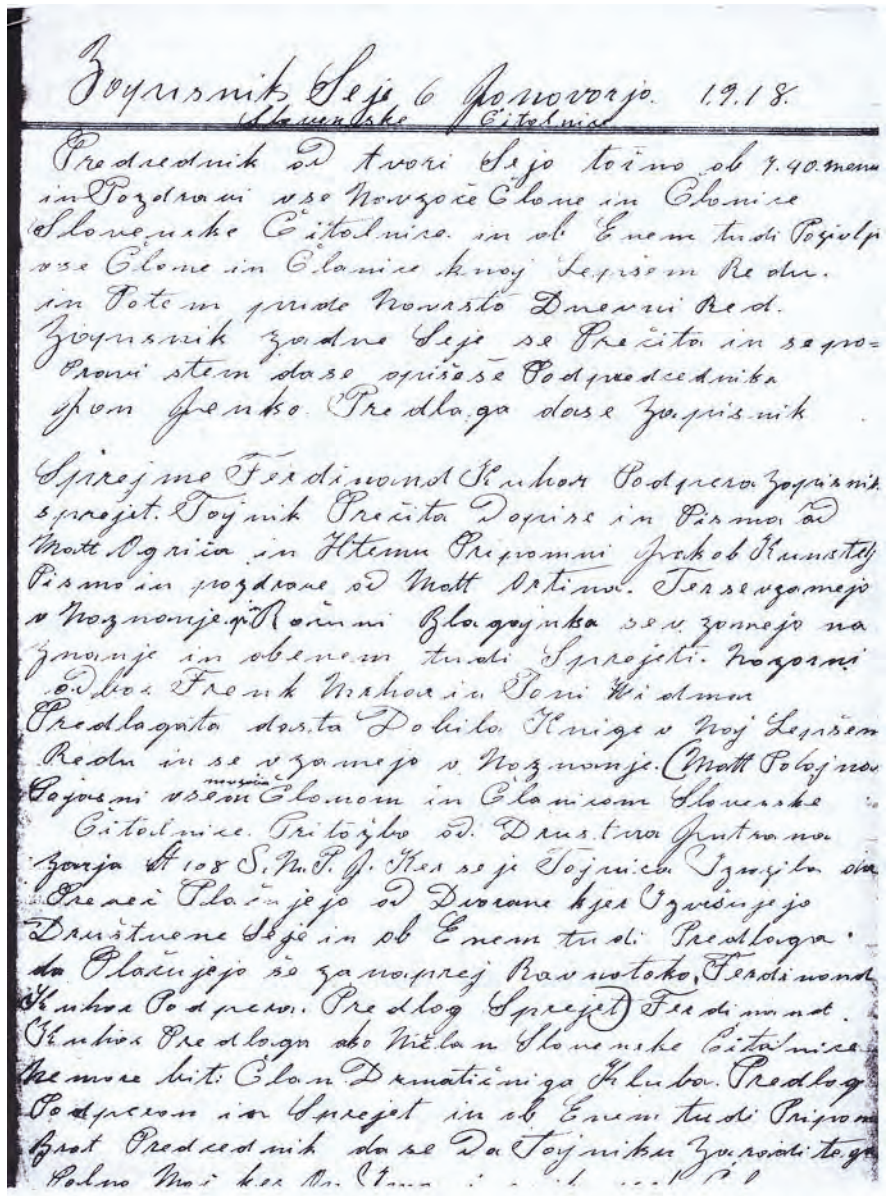 Zapisnik Seje 6 Januvarja. 1918.
Slovenske Čitalnice
Predsednik od tvori Sejo točno ob 7.40. menu
in Pozdravi vse Navzoče Člane in Članice
Slovenske Čitalnice. in ob Enem tudi Pozivlje
vse Člane in Članice knaj Lepšem Redu.
in Potem pride Navrsto Dnevni Red.
Zapisnik zadne Seje se Prečita in se po=
pravi stem dase opiše Podpredcednika
Jon Jenko. Predlaga dase Zapisnik
Sprejme Ferdinand Kuhar Podpera Zapisnik
sprejet. Tajnik Prečita Dopise in Pisma od
Matt Ogriča in Htemu Pripomni Jakob Kunstelj
Pismo in pozdrave od Matt Ortina. Ter se vzamejo
v Naznanje. Računi Blagajnka se v zamejo na
znanje in obenem tudi Sprejeti. Nazorni
odbor Frenk Mrhar in Toni Widmar
Predlagata dasta Dobila Knige v Naj Lepšem
Redu in se v zamejo v Naznanje. (Matt Polajnar
Pojasni vsem Članom in Članicam Slovenske
Čitalnice. Pritožbo od. Drustva Jutrana
Zarja St 108 S.N.P.J. Ker se je Tajnica Izrazila da
Preveč Plačujejo od Dvorane kjer Izvršujejo
Društvene Seje in ob Enem tudi Predlaga
da Plačujejo še zanaprej Ravnotoko, Ferdinand
Kuhar Podpera. Predlog Sprejet) Ferdinand.
Kuhar Predlaga ako Ničlan Slovenske Čitalnice
Nemore biti Član Drmatičniga Kluba. Predlog
Podperan in Sprejet in ob Enem tudi Pripom
Brat Predcednik da se Da Tajniku Zaraditega
Polno Moč ker